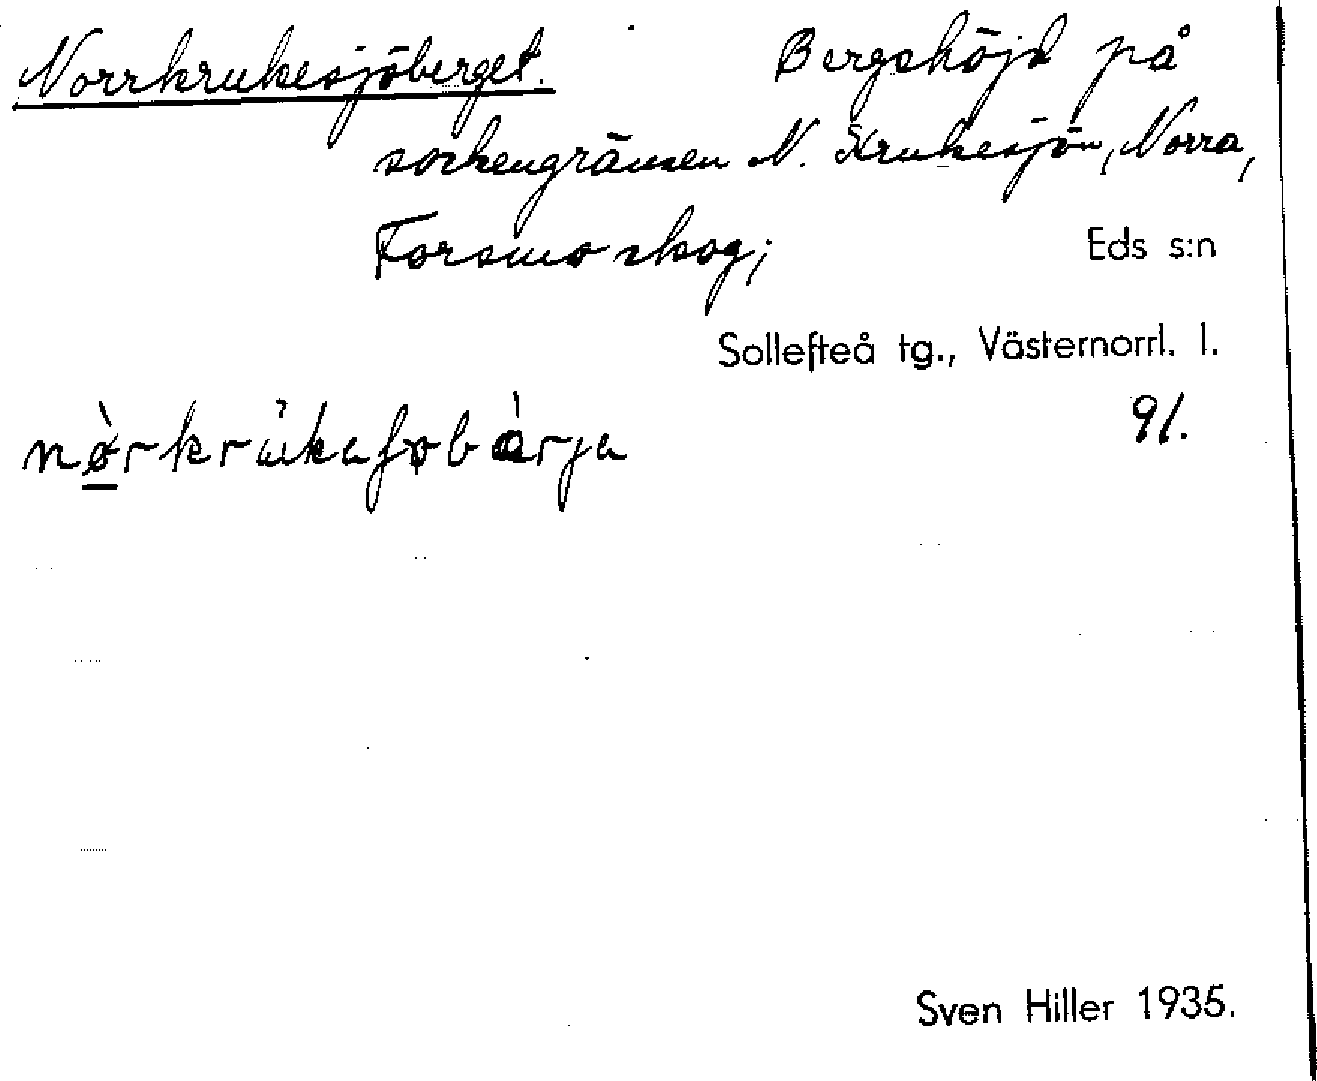 Norrkrukesjöberget. Bergshöjd på
sockengränsen N. Krukesjön, Norra,
Forsmo skog; Eds s:n
Sollefteå tg., Västernorrl. l.
91.
Sven Hiller 1935.